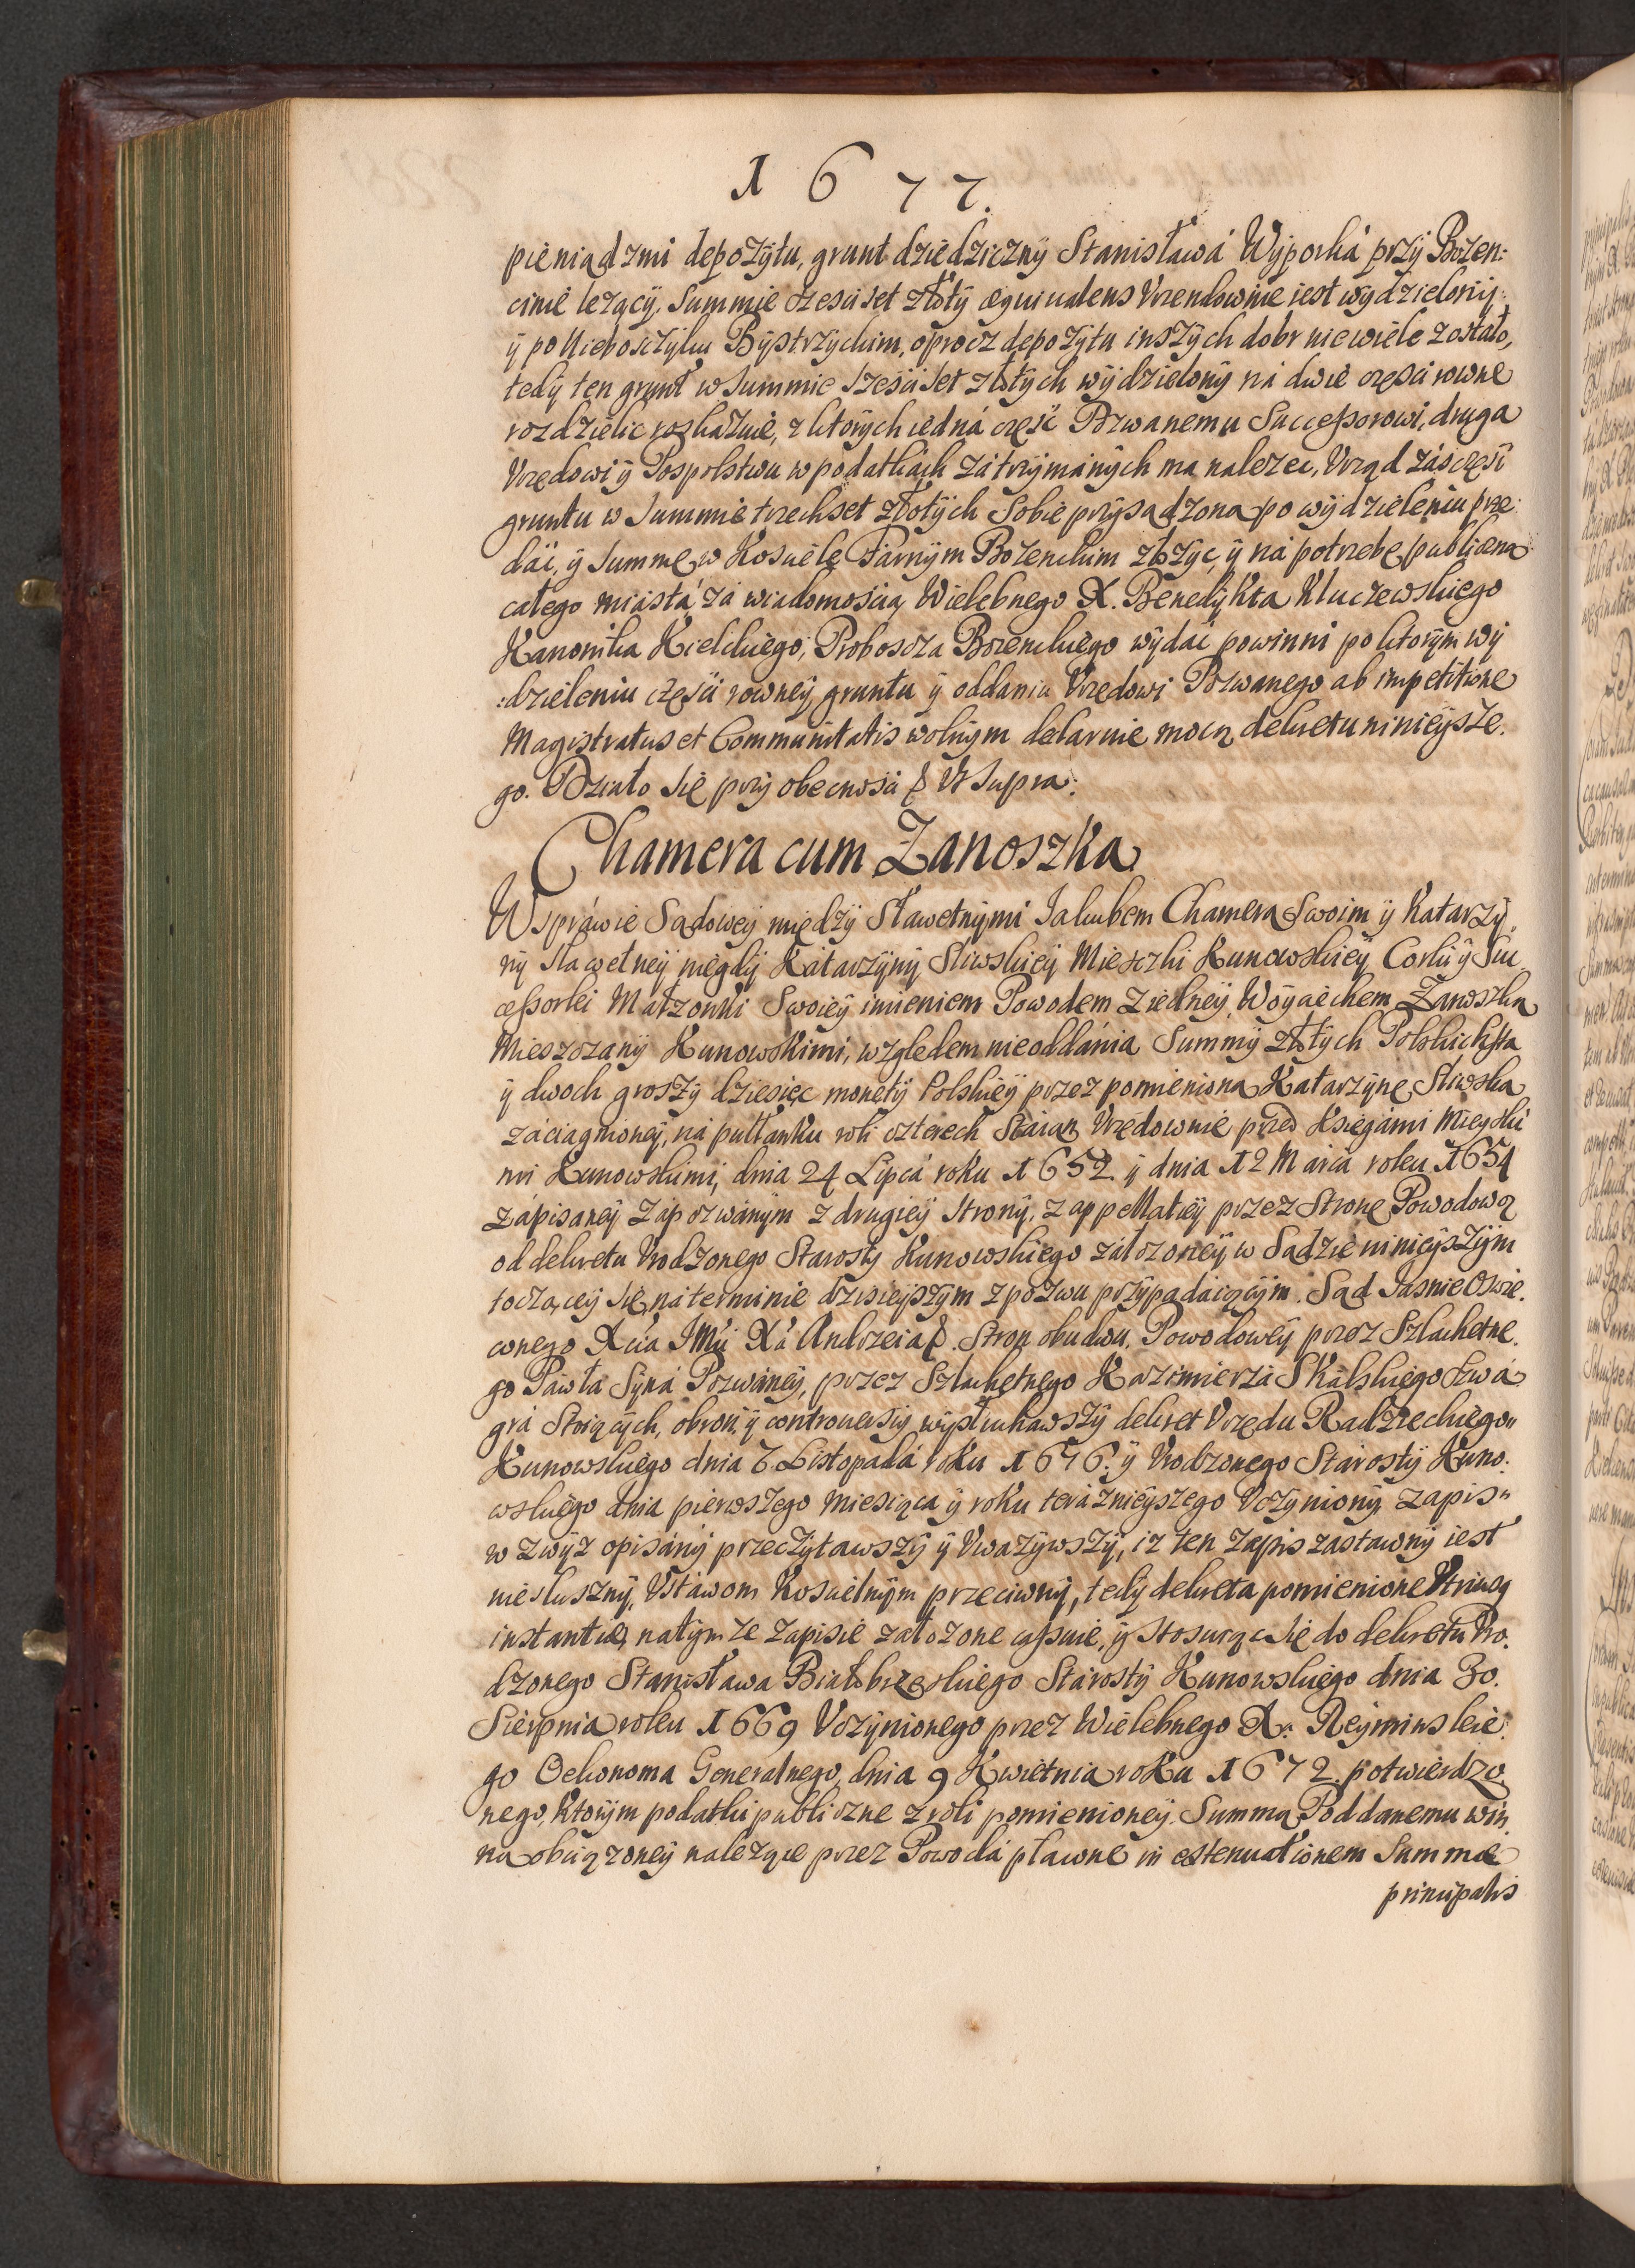 1677.
pieniądzmi depozytu, grunt dziedziczny Stanisława Wyporka przy Bozen:
cinie lezący, Summie szesciset złoty æquiualens Vrzendownie iest wydzielony,
y po Nieboszczyku Bystrzyckim, oprocz depozytu inszych dobr niewiele zostało,
tedy ten grunt w Summie szesciset złotych wydzielony ná dwie częsci rowne
rozdzielic roskazuie, z ktorych iedná częsc Pozwanemu Successorowi, druga
Vrzędowi y Pospolstwu w podatkách zátrzymánych ma nalezec, Vrząd zás częsc
gruntu w Summie trzechset złotych Sobie przysądzoną po wydzieleniu prze:
dác, y Summę w Kosciele Fárnym Bozenckim złozyc, y ná potrzebę publiczną
całego miástá zá wiadomoscią Wielebnego X. Benedykta Kluczewskiego
Kanoniká Kielckiego, Proboszcza Bozenckiego wydác powinni po ktorym wy
:dzieleniu częsci rowney gruntu y oddaniu Vrzędowi Pozwanego ab impetitione
Magistratus et Communitatis wolnym declaruie mocą dekretu ninieysze.
go. Działo się przy obecnosci & Vt Supra.
Chamera cum Zanoszka
W spráwie Sądowey między Sławetnymi Iakubem Chamerą Swoim y Katarzy
ny Sławetney niegdy Katarzyny Sliwskiey Miesczki Kunowskiey Corki y Suc
cessorki Małzonki Swoiey imieniem Powodem z iedney, Woyciechem Zanoszką
Mieszczany Kunowskimi, względem nieoddánia Summy złotych Polskich sta
y dwoch groszy dziesięc monety Polskiey przez pomienioną Katarzynę Sliwską
záciągnioney, ná pułłanku roli czterech Stáian Vrzędownie przed Księgámi Mieyski
mi Kunowskimi, dnia 24 Lipcá roku 1652. y dnia 12 Marca roku 1654
zápisaney Zápozwánym z drugiey strony, z appellatiey przez Stronę Powodową
od dekretu Vrodzonego Starosty Kunowskiego záłozoney w Sądzie ninieyszym
toczącey się ná terminie dzisieyszym z pozwu przypadaiącym. Sąd Iasnie Oswie.
conego Xcia IMci Xá Andrzeia &. Stron obudwu, Powodowey przez Szlachetne.
go Páwłá Syná Pozwáney, przez Szlachetnego Kazimierzá Skálskiego szwá
grá Stoiących, obrony y controuersiy wysłuchawszy dekret Vrzędu Rádzieckiego
Kunowskiego dnia 7. Listopadá roku 1676. y Vrodzonego Stárosty Kuno.
wskiego dnia pierwszego miesiąca y roku teráznieyszego Vczyniony, zapis
w zwyz opisány przeczytawszy y Vwazywszy, iz ten zapis zastawny iest
niesłuszny, Vstáwom Koscielnym przeciwny, tedy dekreta pomienione Vtriusq
instantiæ, natymze zapisie załozone cassuie, y stosuiąc się do dekretu Vro.
dzonego Stanisława Białobrzeskiego Stárosty Kunowskiego dnia 30.
Sierpnia roku 1669 Vczynionego przez Wielebnego X. Reyminskie:
go Oekonoma Generalnego, dnia 9 Kwietnia roku 1672. potwierdzo
nego, ktorym podatki publiczne z roli pomienioney Summą Poddanemu win
ną obciązoney nalezące przez Powodá płacone in extenuationem Summæ
principalis